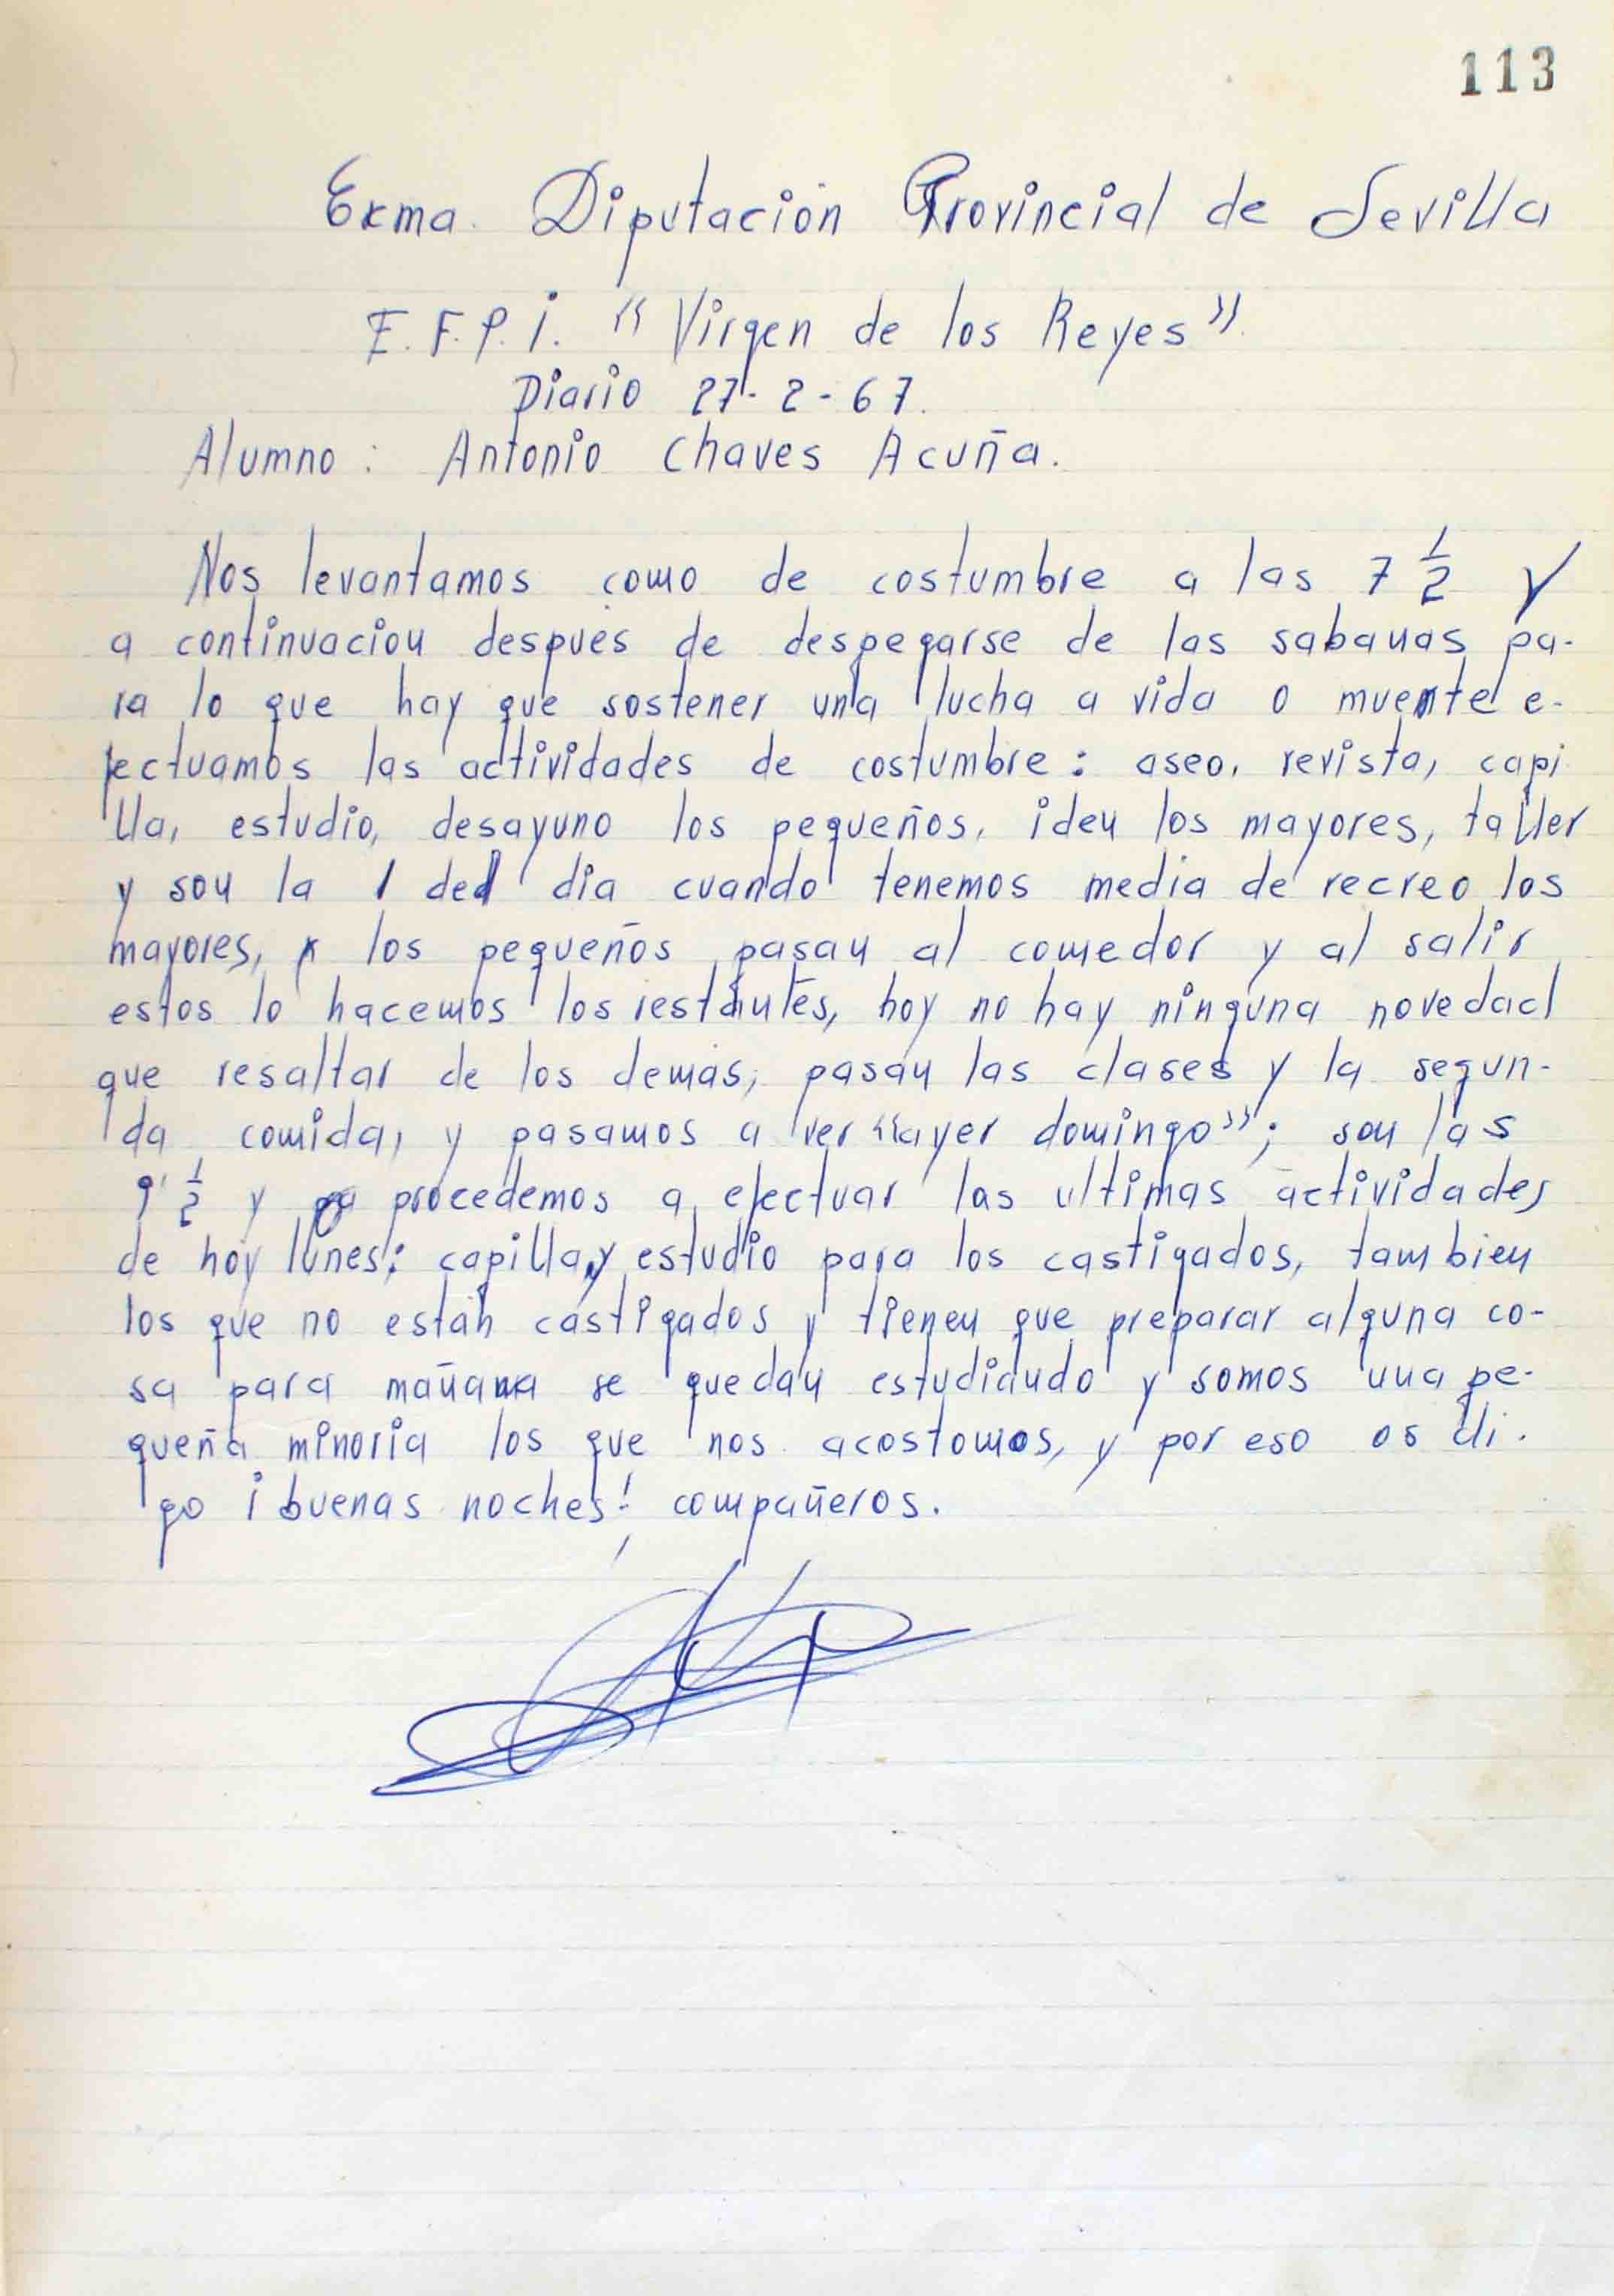 113
Exma. Diputación Provincial de Sevilla
E.F.P.I. "Virgen de los Reyes".
Diario 27-2-67.
Alumno: Antonio Chaves Acuña.
Nos levantamos como de costumbre a las 7 1/2 y
a continuacion despues de despegarse de las sabanas pa-
ra lo que hay que sostener una lucha a vida o muerte e-
fectuamos las actividades de costumbre: aseo, revista, capi
lla, estudio, desayuno los pequeños, iden los mayores, taller
y son la 1 del dia cuando tenemos media de recreo los
mayores, los pequeños pasan al comedor y al salir
estos lo hacemos los restantes, hoy no hay ninguna novedad
que resaltar de los demas, pasan las clases y la segun-
da comida, y pasamos a ver "ayer domingo"; son las
9' 1/2 y procedemos a efectuar las ultimas actividades
de hoy lunes: capilla, y estudio para los castigados, tambien
los que no estan castigados y tienen que preparar alguna co-
sa para mañana se quedan estudiando y somos una pe-
queña minoria los que nos acostamos, y por eso os di-
go ¡buenas noches! compañeros.